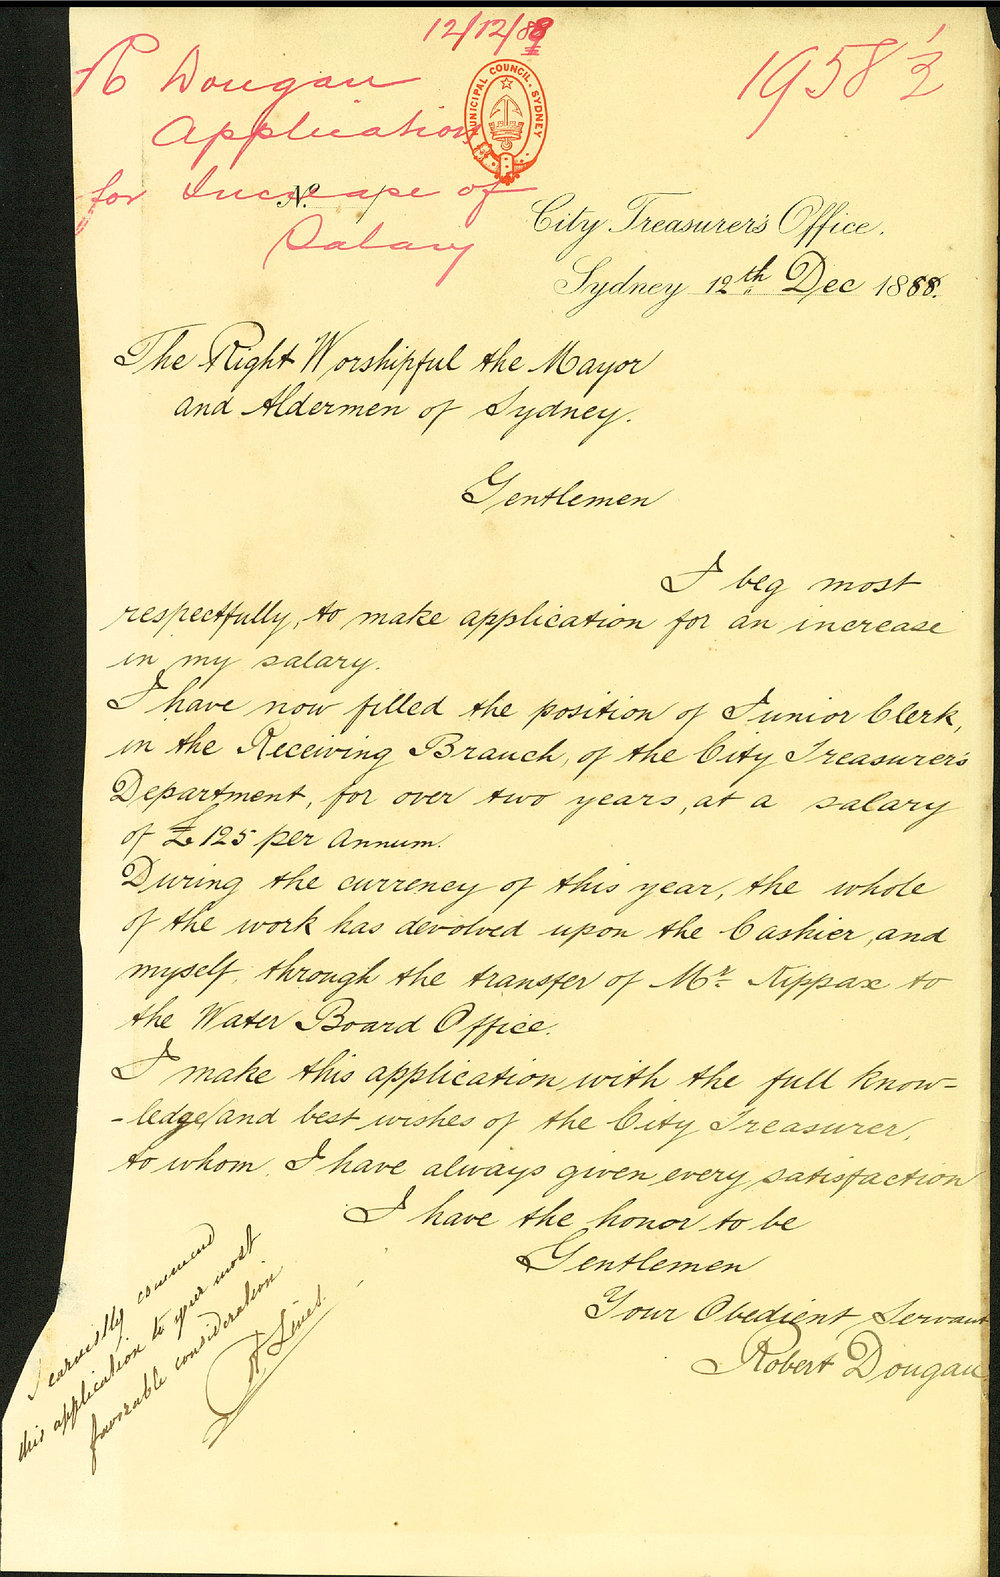 12/12/88
R Dougan
Application
for Increase of
Salary
1958 1/2
MUNICIPAL COUNCIL. SYDNEY
No.
City Treasurer's Office.
Sydney 12th Dec 1888.
The Right Worshipful the Mayor
and Aldermen of Sydney.
Gentlemen
I beg most
respectfully, to make application for an increase
in my salary.
I have now filled the position of Junior Clerk,
in the Receiving Branch, of the City Treasurer's
Department, for over two years, at a salary
of £125 per Annum.
During the currency of this year, the whole
of the work has devolved upon the Cashier, and
myself, through the transfer of Mr. Kippax to
the Water Board Office.
I make this application with the full know-
-ledge, and best wishes of the City Treasurer,
to whom I have always given every satisfaction
I have the honor to be
Gentlemen
Your Obedient Servant
Robert Dougan
I earnestly commend
this application to your most
favorable consideration